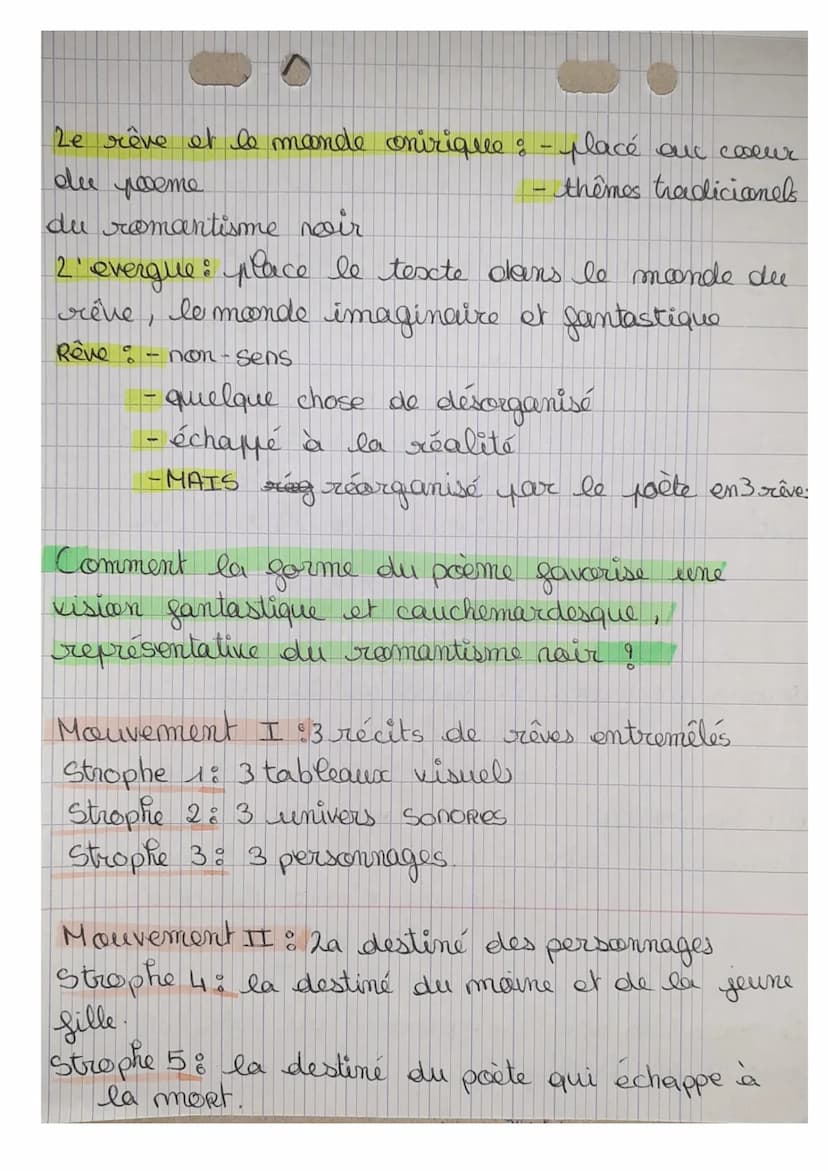 Le rêve et le monde onirique : - placé au coeur
du poeme - thêmes tradicionels
du romantisme noir
L'exergue : place le texte dans le monde du
rêve, le monde imaginaire et fantastique
Rêve : - non-sens
- quelque chose de désorganisé
- échappé à la réalité
- MAIS réorganisé par le poète en 3 rêves
Comment la forme du poème favorise une
vision fantastique et cauchemardesque,
représentative du romantisme noir ?
Mouvement I : 3 récits de rêves entremêlés
Strophe 1 : 3 tableaux visuels
Strophe 2 : 3 univers SONORES
Strophe 3 : 3 personnages.
Mouvement II : La destiné des personnages
Strophe 4 : la destiné du moine et de la jeune
fille.
Strophe 5 : la destiné du poète qui échappe à
la mort.